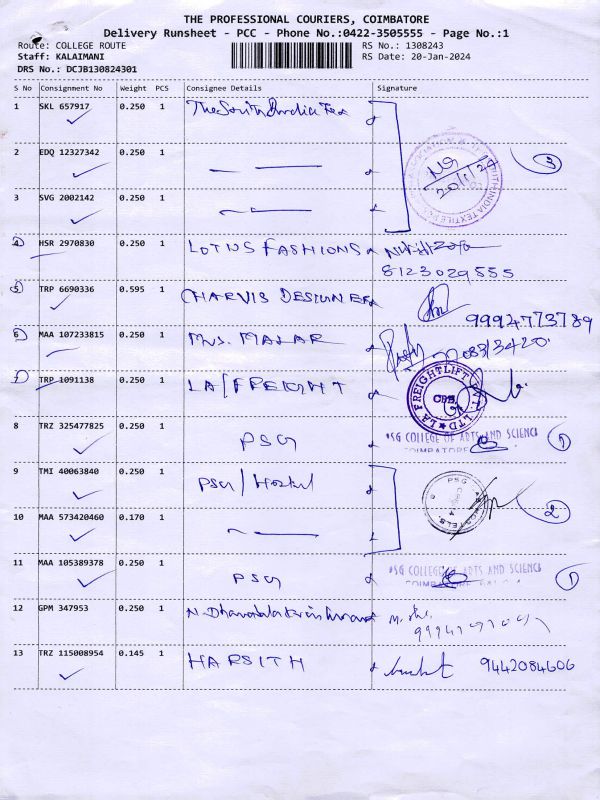 THE PROFESSIONAL COURIERS, COIMBATORE
Delivery Runsheet - PCC - Phone No.:0422-3505555 - Page No.:1
Route: COLLEGE ROUTE
RS No.: 1308243
Staff: KALAIMANI
RS Date: 20-Jan-2024
DRS No.: DCJB130824301
S No Consignment No Weight PCS Consignee Details Signature
1 SKL 657917 0.250 1 The South India Tex
2 EDQ 12327342 0.250 1
20/1/24
3
3 SVG 2002142 0.250 1
4 HSR 2970830 0.250 1 LOTUS FASHIONS
8123029555
5 TRP 6690336 0.595 1 CHARVIS DESIGNER
9994773789
6 MAA 107233815 0.250 1 Mrs. MALAR
7 TRP 1091138 0.250 1 LA/FREIGHT
LA FREIGHTLIFT PVT. LTD
CBE.
8 TRZ 325477825 0.250 1 PSG
PSG COLLEGE OF ARTS AND SCIENCE
COIMBATORE
1
9 TMI 40063840 0.250 1 PSG/Hostel
PSG
HOSTELS
2
10 MAA 573420460 0.170 1
11 MAA 105389378 0.250 1 PSG
PSG COLLEGE OF ARTS AND SCIENCE
1
12 GPM 347953 0.250 1
13 TRZ 115008954 0.145 1 HARSITH
9442084606